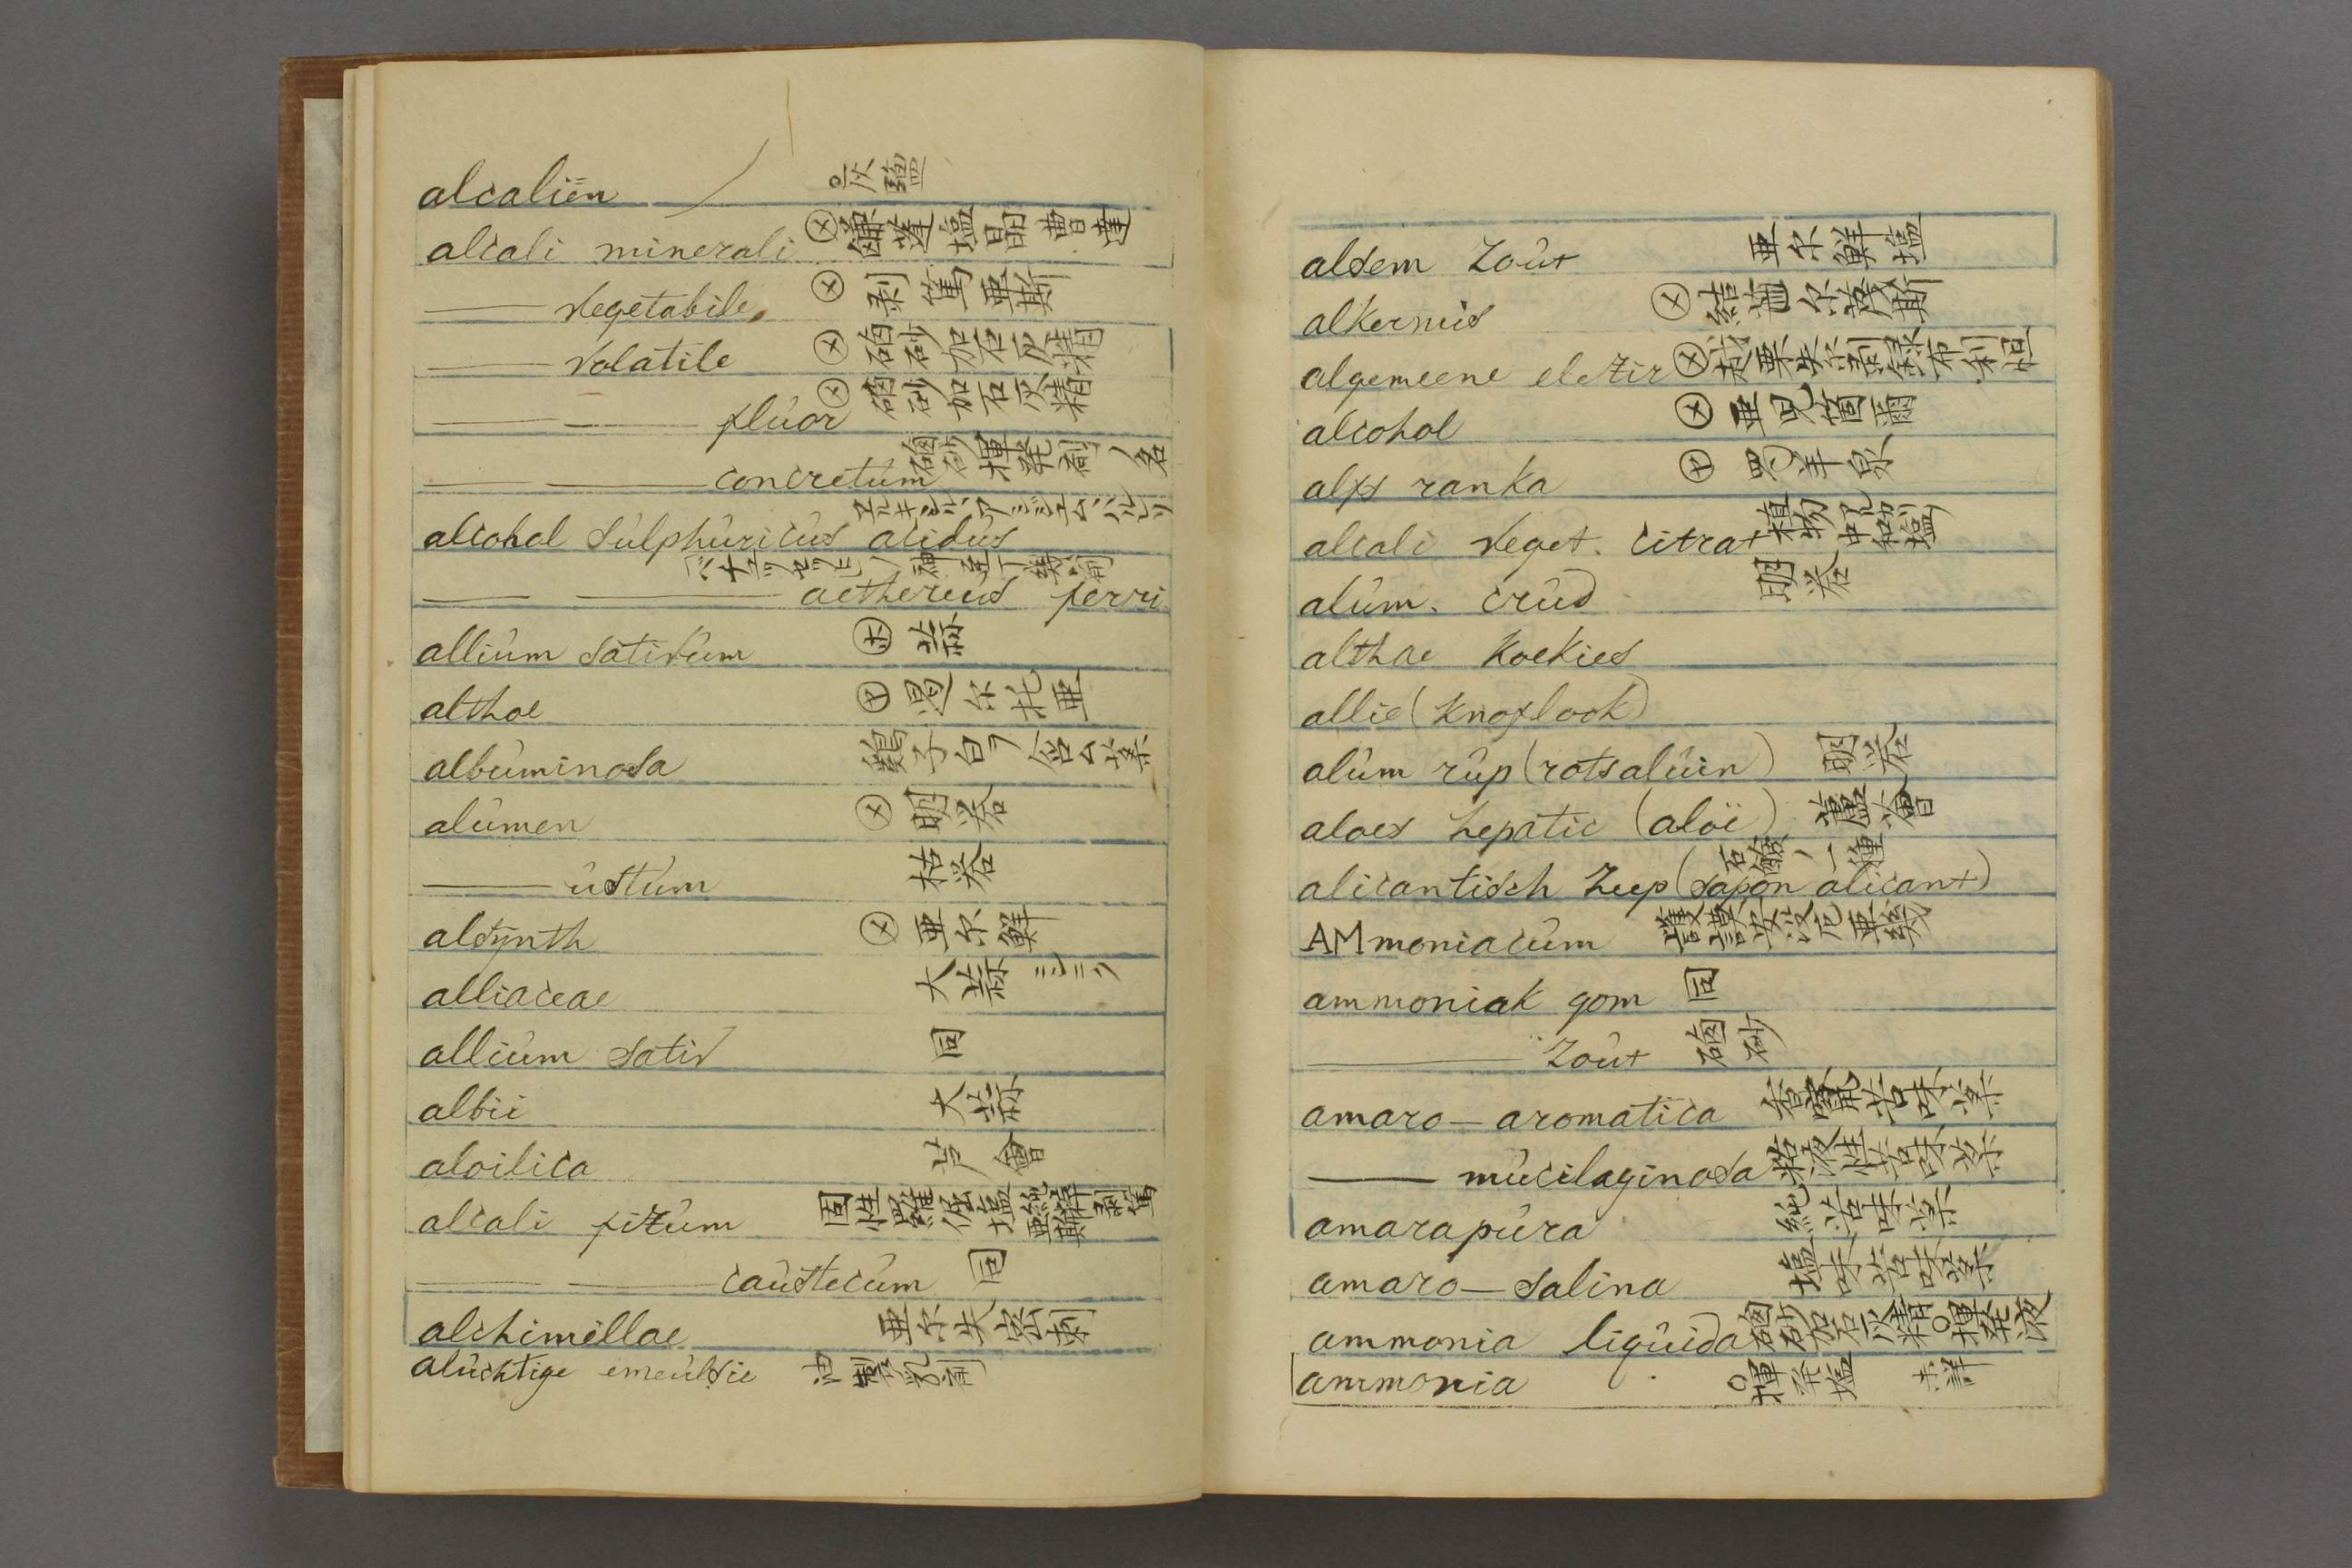 alcaliën 灰鹽
alcali minerali 鹻蓬塩晶曹達
—— vegetabile 剥篤亜斯
—— volatile 硇砂加石灰精
—— —— fluor 硇砂加石灰精
—— —— concretum 硇砂揮発剤ノ名
alcohol sulphuricus acidus
—— —— aethereus ferri
allium sativum 蒜
althoe 渴尓托亜
albuminosa 鷄子白ヲ含ム薬
alumen 明礬
—— ustum 枯礬
alsÿnth 亜尓鮮
alliaceae 大蒜
allium sativ 同
albii 大蒜
aloilica 芦會
alcali fixum 固性
—— —— caustecum 同
alchimillae 亜尓失密剌
aluchtige emeulsie 油製乳剤
alsem zout 亜尓鮮塩
alkermis
algemeene elexir
alcohol
alps ranka
alcali veget. citrat 植物中和塩
alum. crud 明礬
althae koekies
allie (knoflook)
alum rup (rotsaluin) 明礬
aloes hepatic (aloë) 蘆薈
alicantisch zeep (sapon alicant) 石鹸ノ一種
AMmoniacum 護謨安没尼亜幾
ammoniak gom 同
—— zout 硇砂
amaro—aromatica 香竄苦味薬
—— mucilaginosa 粘液性苦味薬
amarapura 純苦味薬
amaro—salina 塩味苦味薬
ammonia liquida 硇砂加石灰精 揮発液
ammonia 揮発塩 未詳